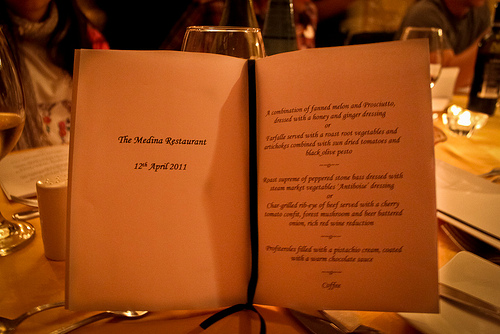 The Medina Restaurant
12th April 2011
A combination of fanned melon and Prosciutto,
dressed with a honey and ginger dressing
or
Farfalle served with a roast root vegetables and
artichokes combined with sun dried tomatoes and
black olive pesto
Roast supreme of peppered stone bass dressed with
steam market vegetables 'Antiboise' dressing
or
Char-grilled rib-eye of beef served with a cherry
tomato confit, forest mushroom and beer battered
onion, rich red wine reduction
Profiteroles filled with a pistachio cream, coated
with a warm chocolate sauce
Coffee